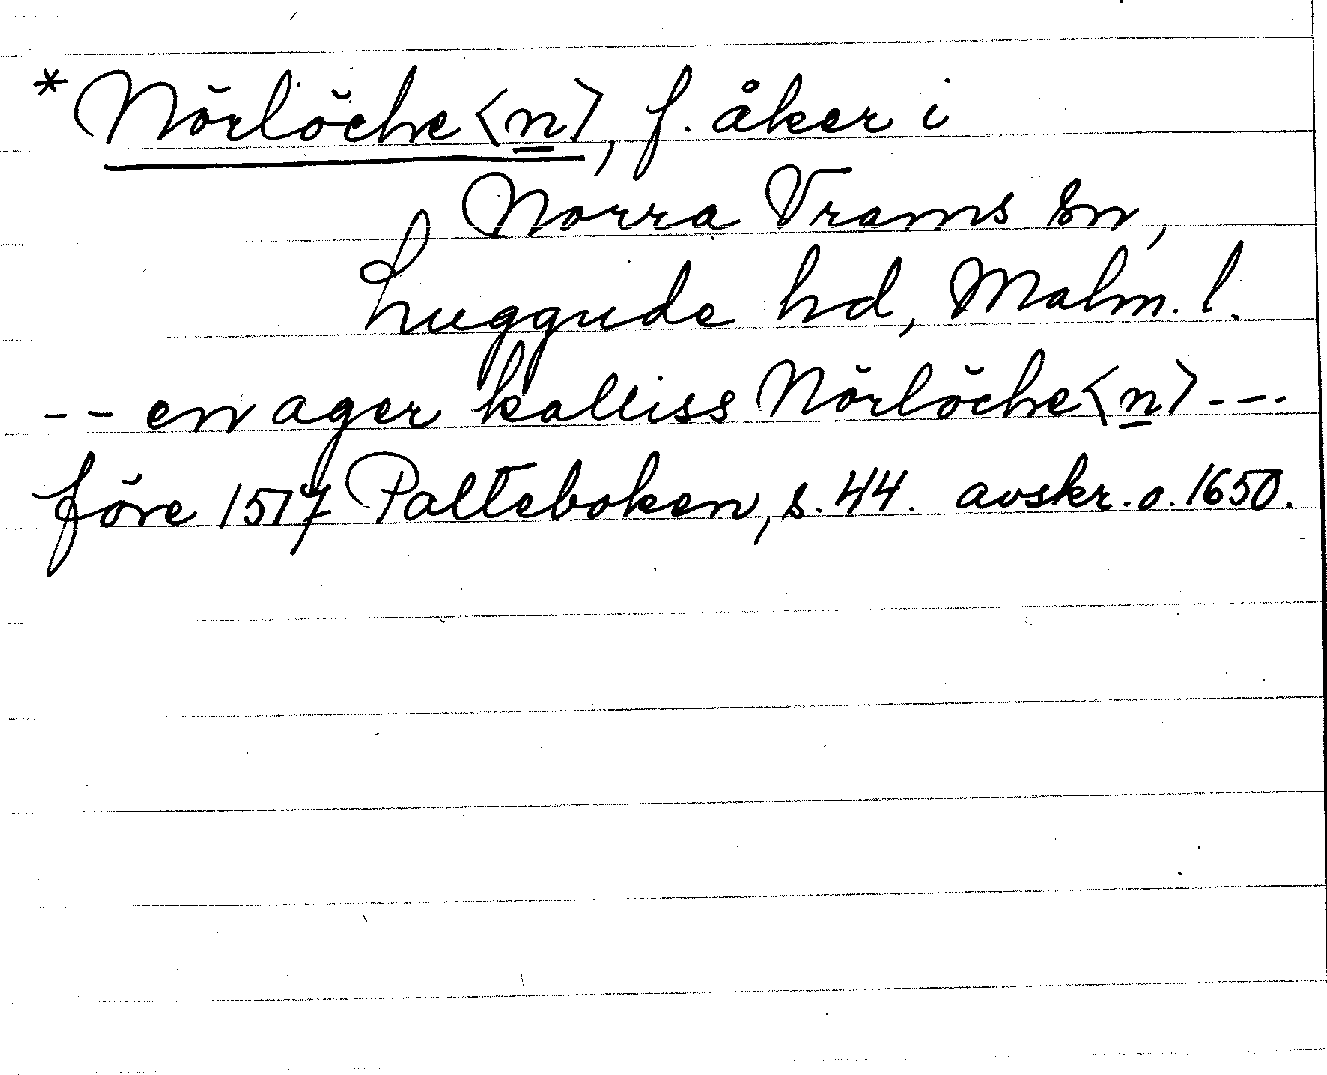 *Nörlöche<n>, f. åker i
Norra Vrams sn,
Luggude hd, Malm. l.
-- en ager kalliss Nörlöche<n> ---
före 1517 Palteboken, s. 44. avskr. o. 1650.